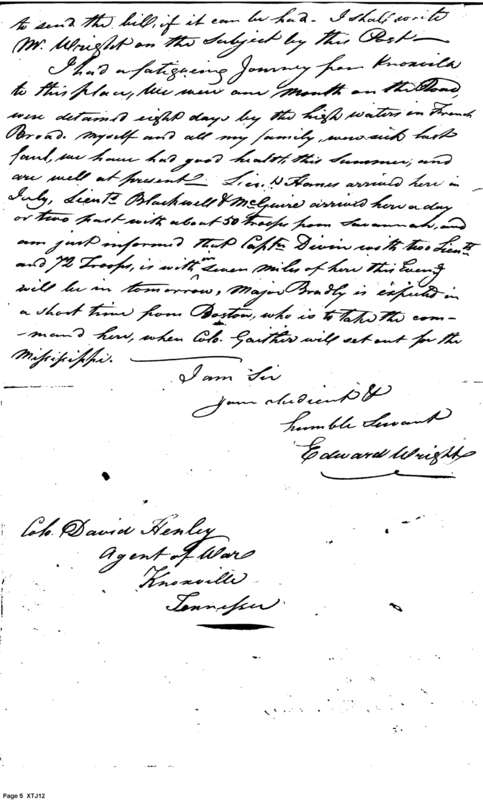 to send the bill, if it can be had. I shall write
Mr. Wright on the subject by this Post —
I had a fatigueing Journey from Knoxville
to this place, We were one month on the Road,
were detained eight days by the high waters in French
Broad. myself and all my family were sick last
faul, we have had good health this Summer, and
are well at present — Lieut. Harnes arrived here in
July, Lieuts. Blackwell & McGuire arrived here a day
or two past with about 50 troops from Savannah, and
am just informed that Captn. Devin with two Lieuts
and 72 Troops, is within seven miles of here this Eveng
will be in tomorrow, Major Bradly is expected in
a short time from Boston, who is to take the com-
mand here, when Colo. Gaither will set out for the
Missisippi. —
I am Sir
your obedient &
humble Servant
Edward Wright
Colo. David Henley
Agent of War
Knoxville
Tennessee
Page 5 XTJ12